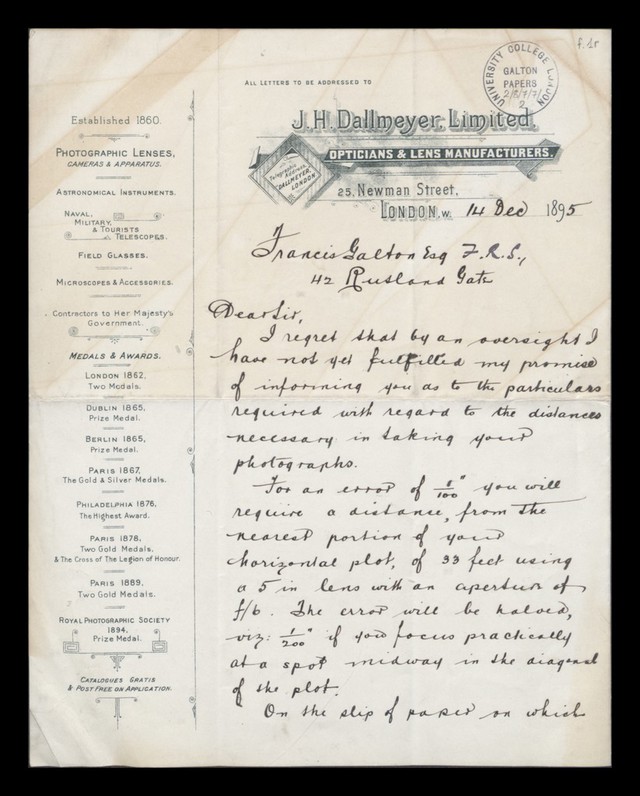 f.1r
UNIVERSITY COLLEGE LONDON
GALTON
PAPERS
2
ALL LETTERS TO BE ADDRESSED TO
J.H. Dallmeyer, Limited.
OPTICIANS & LENS MANUFACTURERS.
Telegraphic
Address,
"DALLMEYER,
LONDON
25, Newman Street,
LONDON, W. 14 Dec 1895
Established 1860.
PHOTOGRAPHIC LENSES,
CAMERAS & APPARATUS.
ASTRONOMICAL INSTRUMENTS.
NAVAL,
MILITARY,
& TOURISTS
TELESCOPES.
FIELD GLASSES.
MICROSCOPES & ACCESSORIES.
Contractors to Her Majesty's
Government.
MEDALS & AWARDS.
LONDON 1862,
Two Medals.
DUBLIN 1865,
Prize Medal.
BERLIN 1865,
Prize Medal.
PARIS 1867,
The Gold & Silver Medals.
PHILADELPHIA 1876,
The Highest Award.
PARIS 1878,
Two Gold Medals,
& The Cross of The Legion of Honour.
PARIS 1889,
Two Gold Medals.
ROYAL PHOTOGRAPHIC SOCIETY
1894,
Prize Medal.
CATALOGUES GRATIS
& POST FREE ON APPLICATION.
Francis Galton Esq F.R.S.,
42 Rutland Gate
Dear Sir,
I regret that by an oversight I
have not yet fulfilled my promise
of informing you as to the particulars
required with regard to the distances
necessary in taking your
photographs.
For an error of 1/100" you will
require a distance, from the
nearest portion of your
horizontal plot, of 33 feet using
a 5 in lens with an aperture of
f/6. The error will be halved,
viz: 1/200" if you focus practically
at a spot midway in the diagonal
of the plot.
On the slip of paper on which